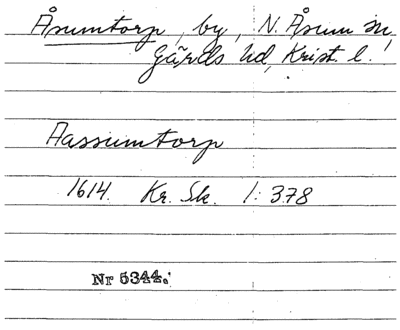 Åsumtorp, by, N. Åsum sn,
Gärds hd, Krist. l.
Aassumtorp
1614. Kr. Sk. 1:378
Nr 5344.